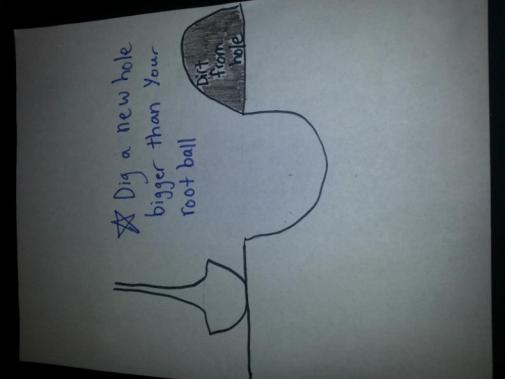 ☆ Dig a new hole
bigger than your
root ball
Dirt
from
hole